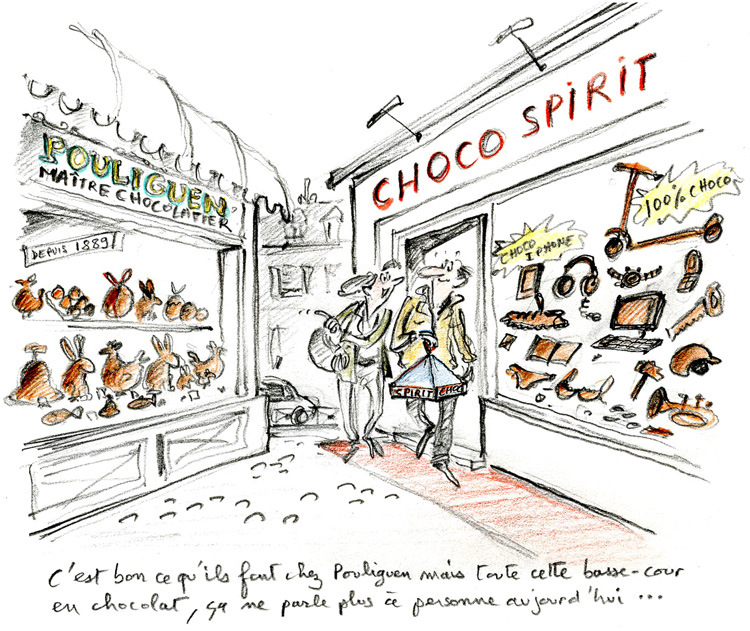 POULIGUEN
MAÎTRE CHOCOLATIER
DEPUIS 1889
CHOCO SPIRIT
100% CHOCO
CHOCO
IPHONE
SPIRIT CHOCO
C'est bon ce qu'ils font chez Pouliguen mais toute cette basse-cour
en chocolat, ça ne parle plus à personne aujourd'hui ...